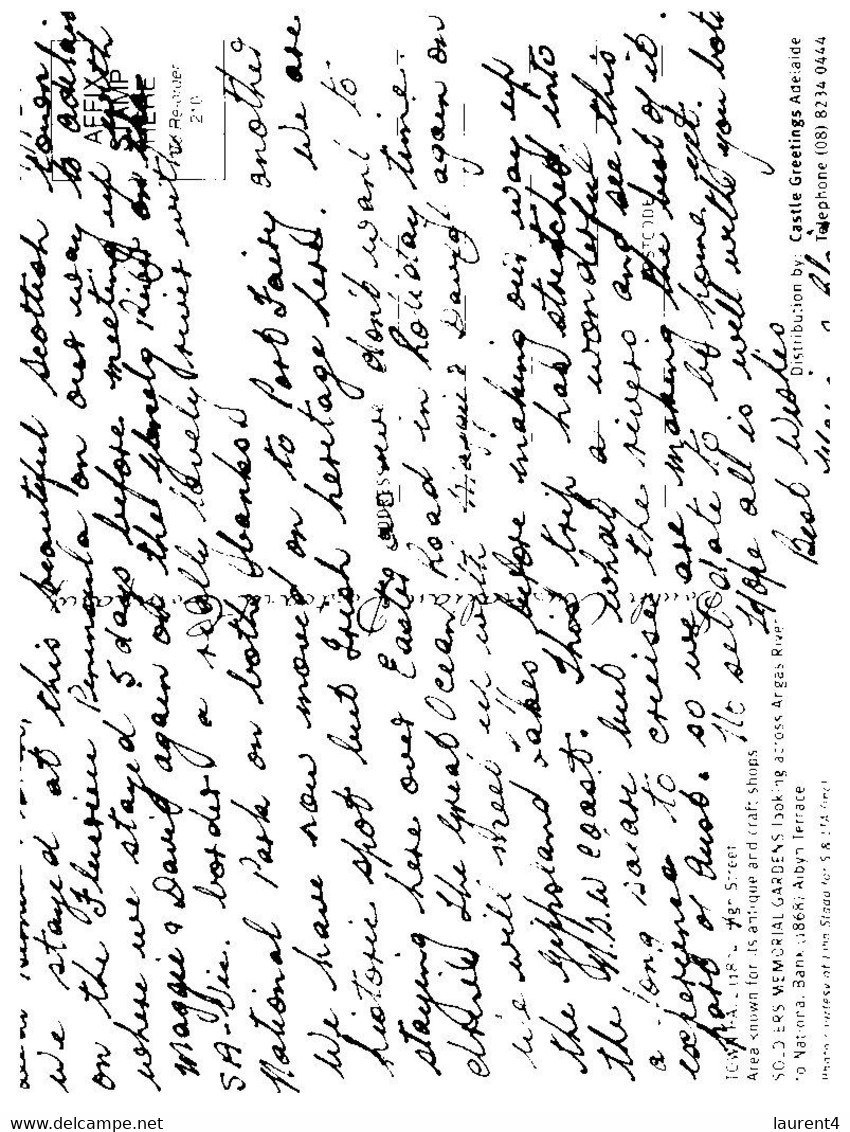 We stayed at this beautiful Scottish town
on the Fleurieu Peninsula on our way to Adelaide
where we stayed 5 days before meeting up with
Maggie & David again on the Glenelg River on the
SA-Vic. border a really lovely river with
National Park on both banks.
We have now moved on to Port Fairy another
historic spot but Irish heritage here. We are
staying here over Easter as we don't want to
drive the Great Ocean Road in holiday time.
We will meet up with Maggie & David again on
the Gippsland Lakes before making our way up
the N.S.W coast. This trip has stretched into
a long one but what a wonderful
experience to cruise the rivers and see this
part of Aust. so we are making the best of it.
No set date to be home yet.
Hope all is well with you both
Best Wishes
AFFIX
STAMP
HERE
Re-order
ADDRESS
POSTCODE
South Australia
High Street
Area known for its antique and craft shops
SOLDIERS MEMORIAL GARDENS looking across Angas River
to National Bank (1868) Albyn Terrace
Distribution by: Castle Greetings Adelaide
Telephone (08) 8234 0444
delcampe.net
laurent4